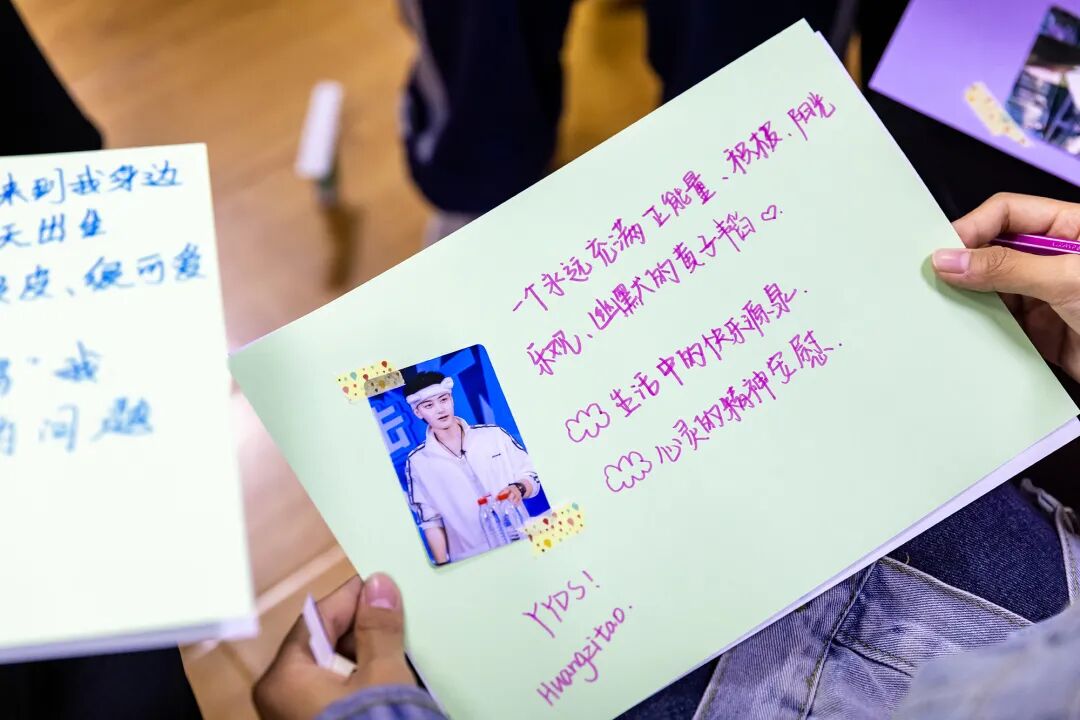 来到我身边
天出生
皮、很可爱
我
问题
一个永远充满正能量、积极、阳光
乐观、幽默的黄子韬♡.
生活中的快乐源泉.
心灵的精神安慰.
YYDS!
Huangzitao.